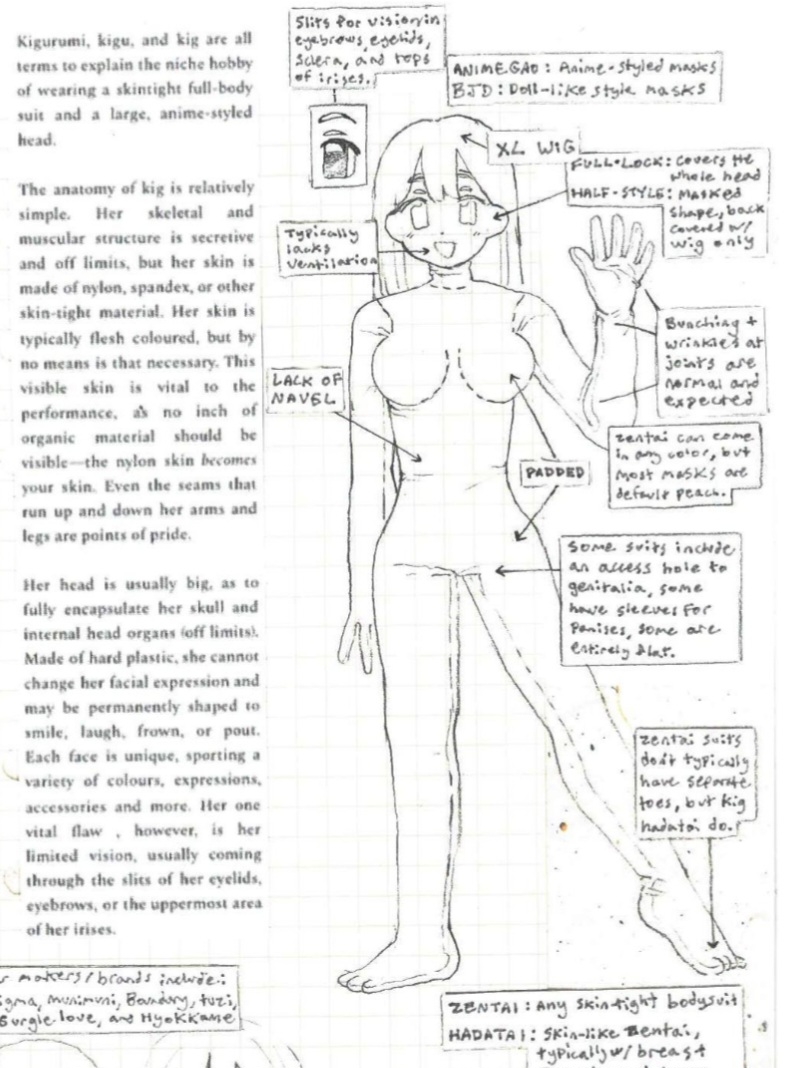 Kigurumi, kigu, and kig are all
terms to explain the niche hobby
of wearing a skintight full-body
suit and a large, anime-styled
head.
The anatomy of kig is relatively
simple. Her skeletal and
muscular structure is secretive
and off limits, but her skin is
made of nylon, spandex, or other
skin-tight material. Her skin is
typically flesh coloured, but by
no means is that necessary. This
visible skin is vital to the
performance, as no inch of
organic material should be
visible—the nylon skin becomes
your skin. Even the seams that
run up and down her arms and
legs are points of pride.
Her head is usually big, as to
fully encapsulate her skull and
internal head organs (off limits).
Made of hard plastic, she cannot
change her facial expression and
may be permanently shaped to
smile, laugh, frown, or pout.
Each face is unique, sporting a
variety of colours, expressions,
accessories and more. Her one
vital flaw , however, is her
limited vision, usually coming
through the slits of her eyelids,
eyebrows, or the uppermost area
of her irises.
Slits for vision in
eyebrows, eyelids,
sclera, and tops
of irises.
ANIMEGAO: Anime-styled masks
BJD: Doll-like style masks
XL WIG
FULL-LOCK: Covers the
whole head
HALF-STYLE: Masked
shape, back
covered w/
wig only
Typically
lacks
ventilation
Bunching +
wrinkles at
joints are
normal and
expected
LACK OF
NAVEL
zentai can come
in any color, but
most masks are
default peach.
PADDED
Some suits include
an access hole to
genitalia, some
have sleeves for
Penises, some are
entirely flat.
zentai suits
don't typically
have separate
toes, but kig
hadatai do.
makers/brands include:
Munimuni,
and Hyokkame
ZENTAI: Any skin-tight bodysuit
HADATAI: Skin-like zentai,
typically w/ breast